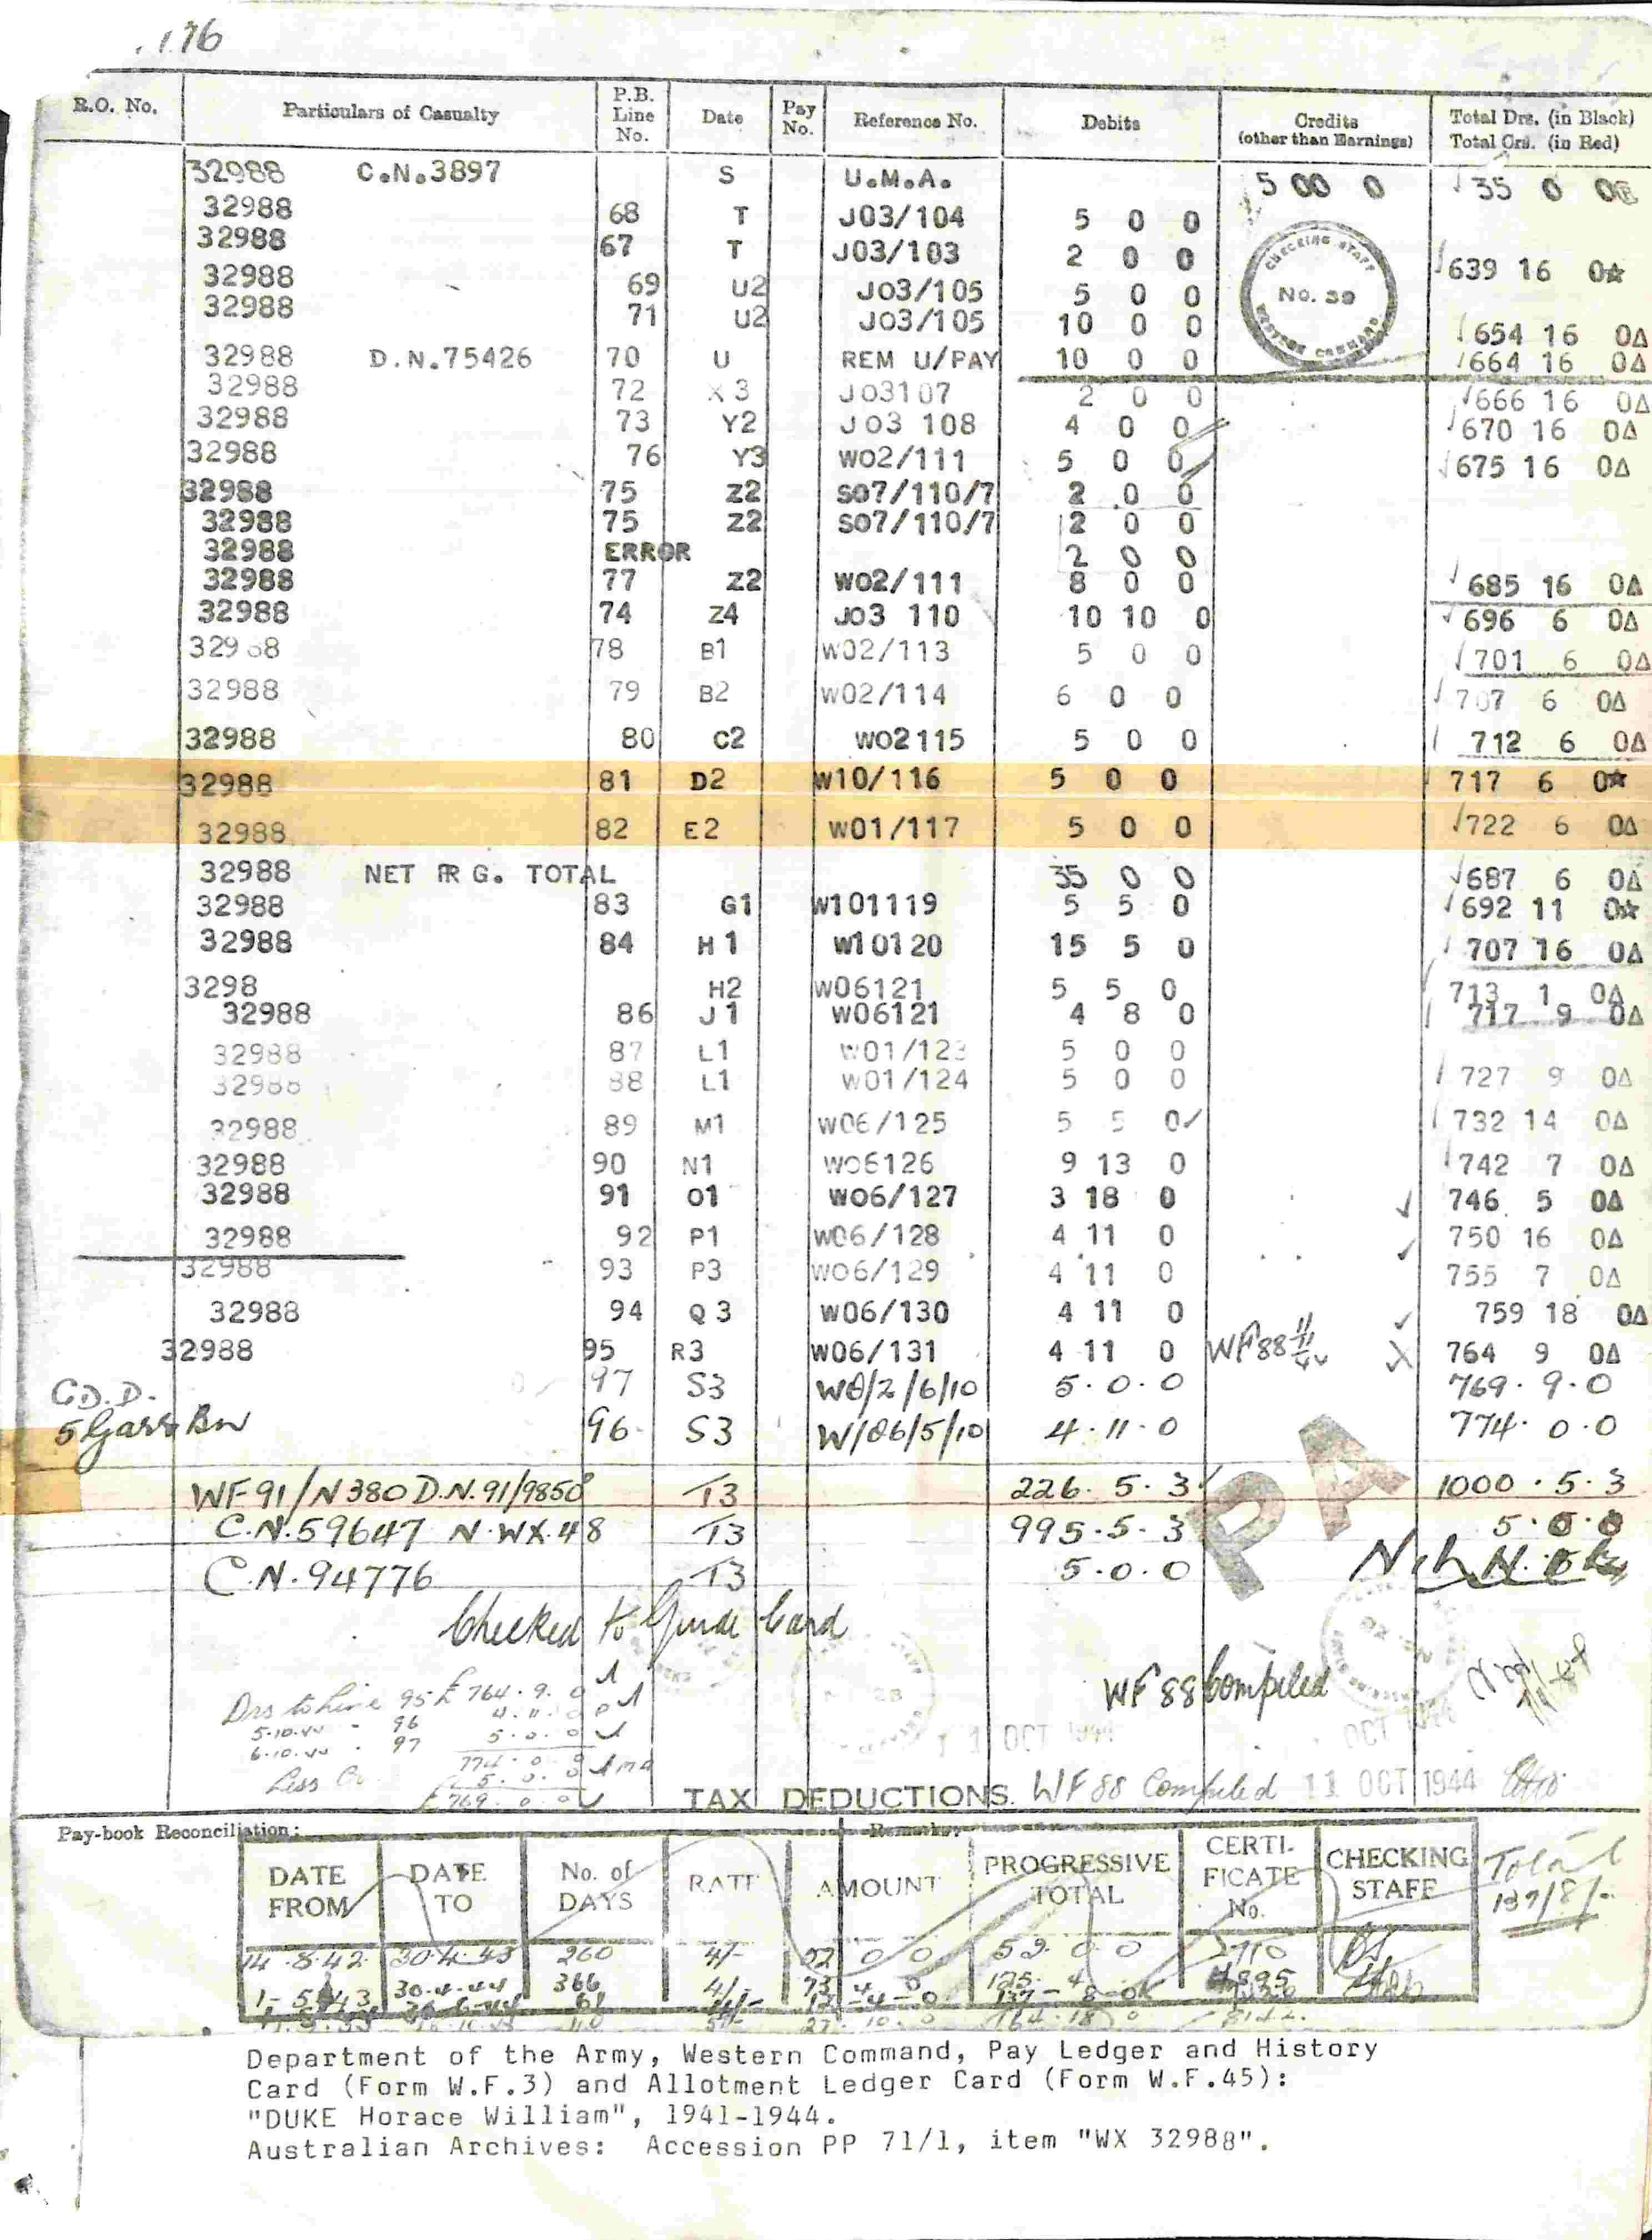 .176
R.O. No. Particulars of Casualty P.B. Line No. Date Pay No. Reference No. Debits Credits (other than Earnings) Total Drs. (in Black) Total Crs. (in Red)
32988 C.N.3897 S U.M.A. 5 00 0 35 0 0
32988 68 T J03/104 5 0 0
32988 67 T J03/103 2 0 0 639 16 0☆
CHECKING STAFF No. 39 WESTERN COMMAND
32988 69 U2 J03/105 5 0 0
32988 71 U2 J03/105 10 0 0 654 16 0Δ
32988 D.N.75426 70 U REM U/PAY 10 0 0 664 16 0Δ
32988 72 X3 J03107 2 0 0 666 16 0Δ
32988 73 Y2 J03 108 4 0 0 670 16 0Δ
32988 76 Y3 W02/111 5 0 0 675 16 0Δ
32988 75 Z2 S07/110/7 2 0 0
32988 75 Z2 S07/110/7 2 0 0
32988 ERROR 2 0 0
32988 77 Z2 W02/111 8 0 0 685 16 0Δ
32988 74 Z4 J03 110 10 10 0 696 6 0Δ
32988 78 B1 W02/113 5 0 0 701 6 0Δ
32988 79 B2 W02/114 6 0 0 707 6 0Δ
32988 80 C2 W02115 5 0 0 712 6 0Δ
32988 81 D2 W10/116 5 0 0 717 6 0☆
32988 82 E2 W01/117 5 0 0 722 6 0Δ
32988 NET RR G. TOTAL 35 0 0 687 6 0Δ
32988 83 G1 W101119 5 5 0 692 11 0☆
32988 84 H1 W10120 15 5 0 707 16 0Δ
3298 H2 W06121 5 5 0 713 1 0Δ
32988 86 J1 W06121 4 8 0 717 9 0Δ
32988 87 L1 W01/123 5 0 0
32988 88 L1 W01/124 5 0 0 727 9 0Δ
32988 89 M1 W06/125 5 5 0✓ 732 14 0Δ
32988 90 N1 W06126 9 13 0 742 7 0Δ
32988 91 O1 W06/127 3 18 0 ✓ 746 5 0Δ
32988 92 P1 W06/128 4 11 0 ✓ 750 16 0Δ
32988 93 P3 W06/129 4 11 0 755 7 0Δ
32988 94 Q3 W06/130 4 11 0 ✓ 759 18 0Δ
32988 95 R3 W06/131 4 11 0 WF88 X 764 9 0Δ
G.D.D. 97 S3 W8/2/6/10 5.0.0 769.9.0
5 Garr Bn 96 S3 W/06/5/10 4.11.0 774.0.0
PA
WF91/N380 D.N.91/9858 T3 226.5.3 1000.5.3
C.N.59647 N.WX.48 T3 995.5.3 5.0.0
C.N.94776 T3 5.0.0
Checked to Guide Card
WF88 Compiled
Drs to Line 95 £764.9.0
5.10.44 96 4.11.0
6.10.44 97 5.0.0
774.0.0
Less Cr. 5.0.0
£769.0.0
11 OCT 1944
OCT 1944
TAX DEDUCTIONS. WF88 Compiled 11 OCT 1944
Pay-book Reconciliation: Remarks:
DATE FROM DATE TO No. of DAYS RATE AMOUNT PROGRESSIVE TOTAL CERTI-FICATE No. CHECKING STAFF Total 137/8/-
14.8.42 30.4.43 260 4/- 52 0 0 52.0.0 2710
1-5-43 30.4.44 366 4/- 73 4 0 125.4 4895
61 12-4-0 137-8-0
27.10.0 164.18.0
Department of the Army, Western Command, Pay Ledger and History
Card (Form W.F.3) and Allotment Ledger Card (Form W.F.45):
"DUKE Horace William", 1941-1944.
Australian Archives: Accession PP 71/1, item "WX 32988".